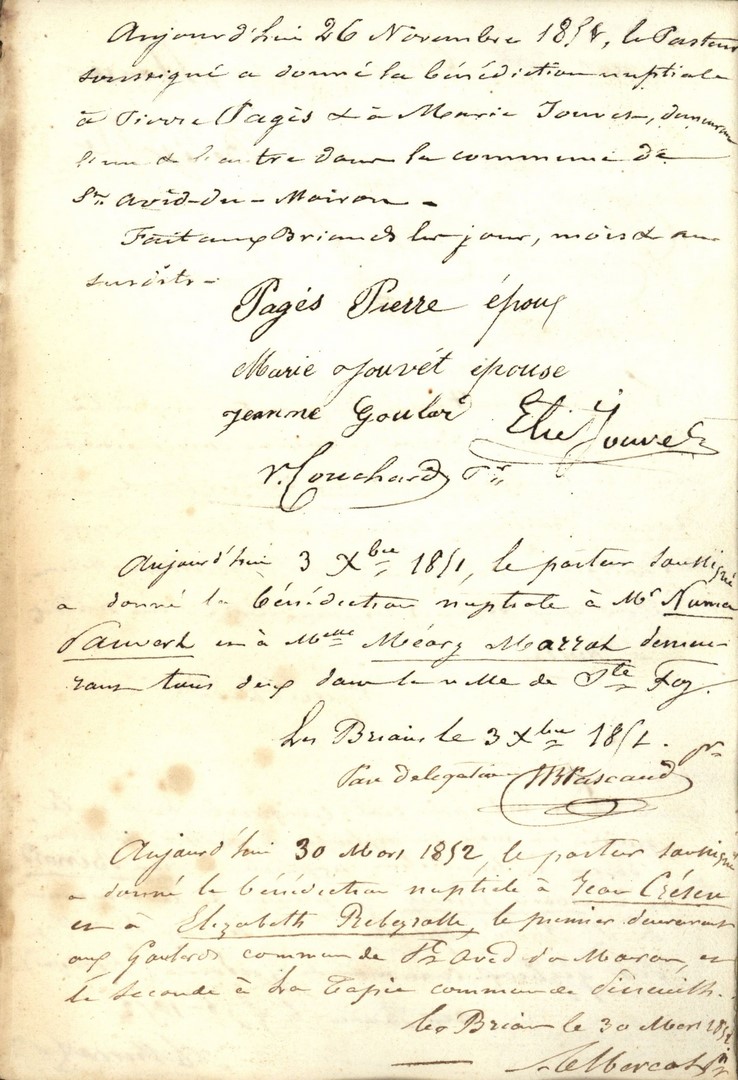 Aujourd'hui 26 Novembre 1858, le Pasteur
soussigné a donné la bénédiction nuptiale
à Pierre Pagès & à Marie Jouvet, demeuran
l'un & l'autre dans la commune de
St. Avid-du-Moiron -
Fait aux Briands les jour, mois & an
Pagés Pierre époux
Marie Jouvét épouse
Jeanne Goulard Elie Jouvet
V. Couchard Pr
Aujourd'hui 3 Xbre 1851, le pasteur soussigné
a donné la bénédiction nuptiale à Mr Numa
et à Melle Méary Marrat demeu-
rant tous deux dans la ville de Ste Foy.
Les Brians le 3 Xbre 1851.
Par délégation Brascaud pr
Aujourd'hui 30 Mars 1852, le pasteur soussigné
a donné la bénédiction nuptiale à Jean
et à Elizabeth Rebeyrolle, le premier demeurant
aux Goulards commune de St Avid du Moiron, et
la seconde à La Tapie commune de
les Brian le 30 Mars 1852